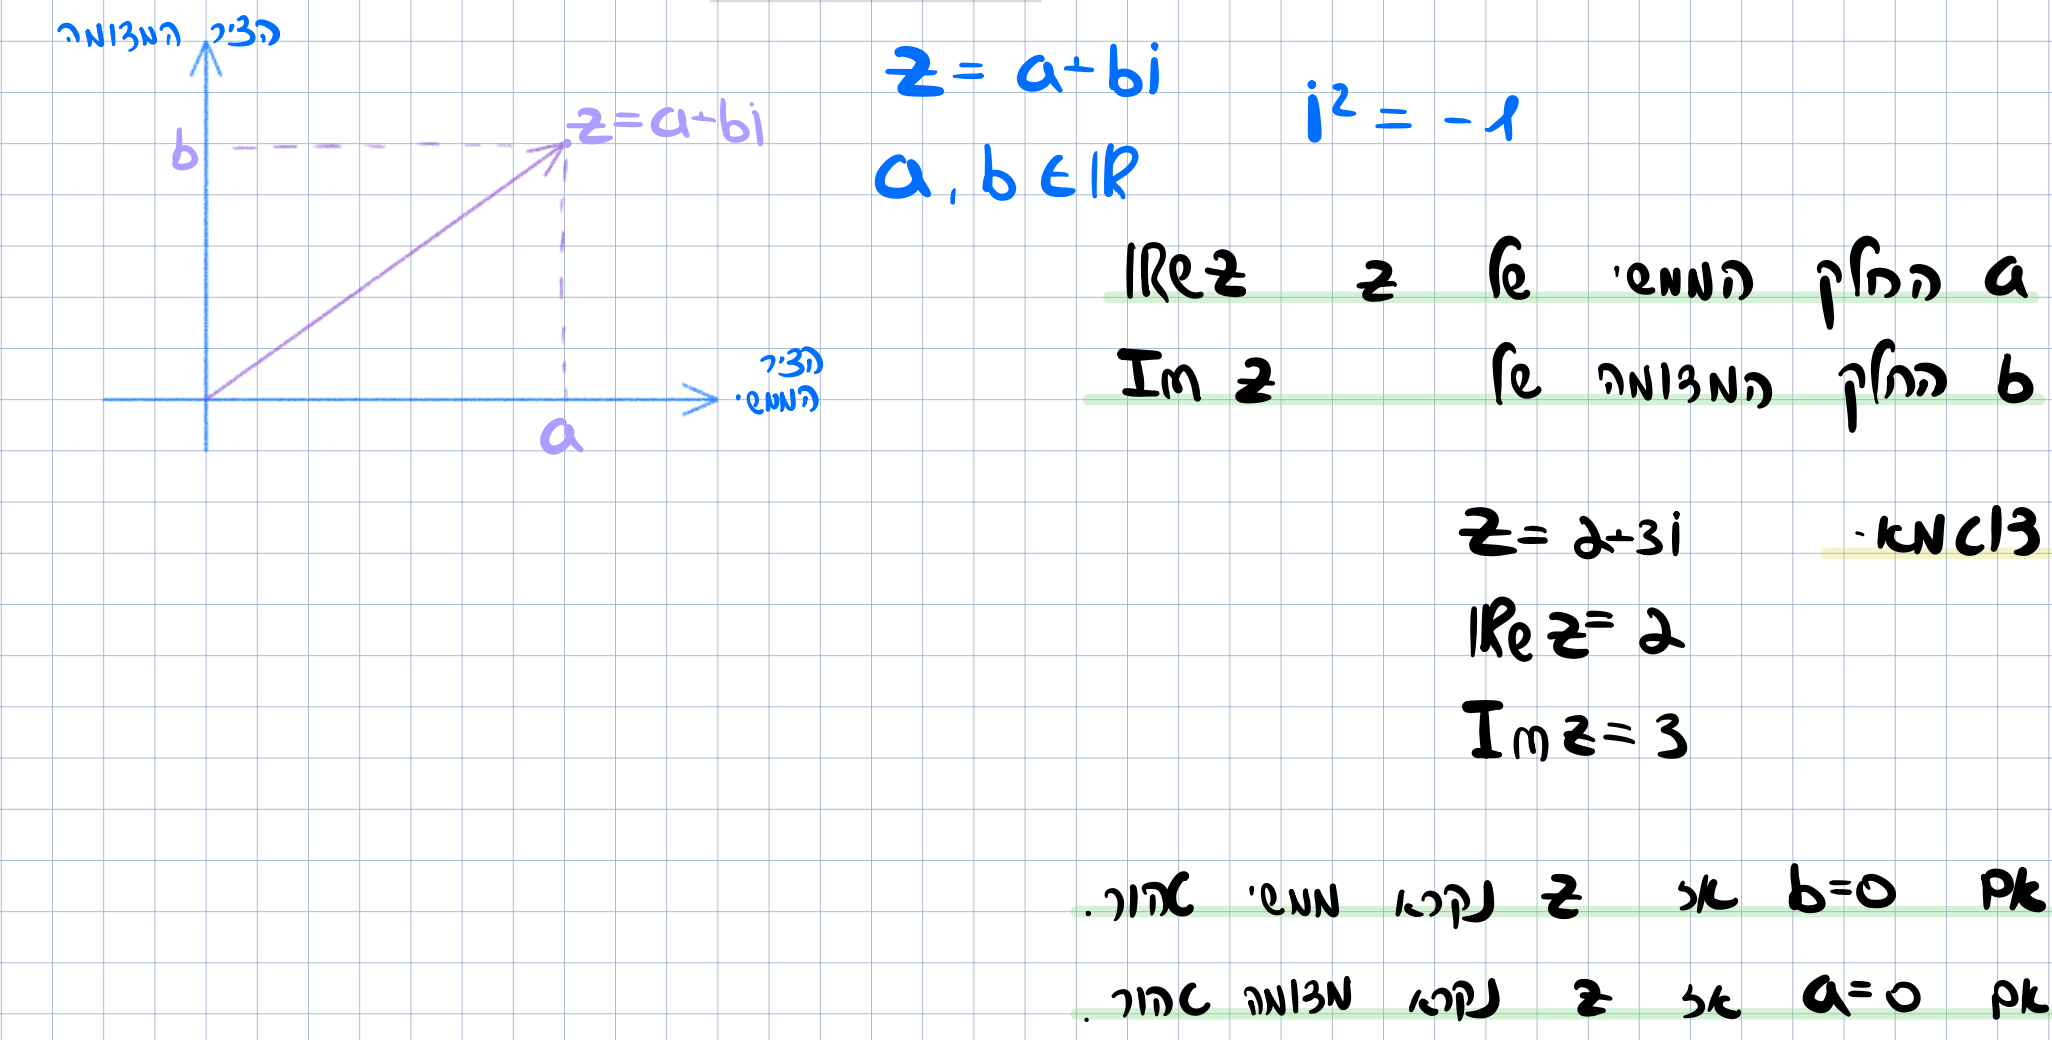 הציר המדומה
z = a+bi
a, b ∈ ℝ
i² = -1
z=a+bi
b
a
הציר
הממשי
a החלק הממשי של z ℝe z
b החלק המדומה של Im z
דוגמא-
z = 2+3i
ℝe z = 2
Im z = 3
אם b=0 אז z נקרא ממשי טהור.
אם a=0 אז z נקרא מדומה טהור.